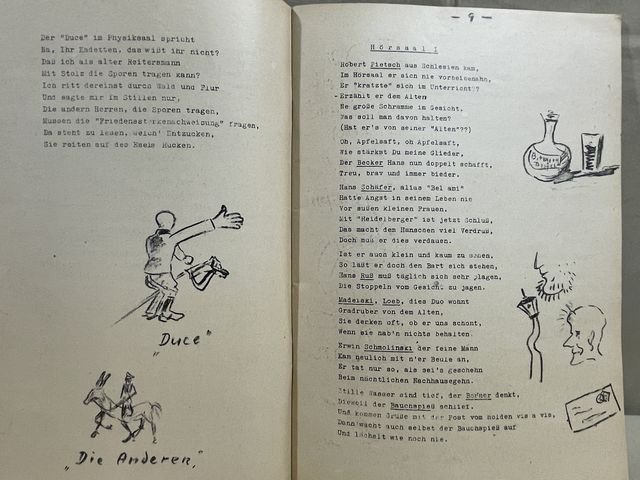 Der "Duce" im Physiksaal spricht
Na, Ihr Kadetten, das wißt ihr nicht?
Daß ich als alter Reitersmann
Mit Stolz die Sporen tragen kann?
Ich ritt dereinst durch Wald und Flur
Und sagte mir im Stillen nur,
Die andern Herren, die Sporen tragen,
Müssen die "Friedensstärkenachweisung" fragen,
Da steht zu lesen, welch' Entzücken,
Sie reiten auf des Esels Rücken.
"Duce"
"Die Anderen"
- 9 -
Hörsaal I
Robert Pietsch aus Schlesien kam,
Im Hörsaal er sich nie vorbeinahm,
Er "kratzte" sich im Unterricht??
Erzählt er dem Alten
Ne große Schramme im Gesicht.
Was soll man davon halten?
(Hat er's von seiner "Alten"??)
Oh, Apfelsaft, oh Apfelsaft,
Wie stärkst Du meine Glieder,
Der Becker Hans nun doppelt schafft,
Treu, brav und immer bieder.
Hans Schäfer, alias "Bel ami"
Hatte Angst in seinem Leben nie
Vor süßen kleinen Frauen.
Mit "Heidelberger" ist jetzt Schluß,
Das macht dem Hänschen viel Verdruß,
Doch muß er dies verdauen.
Ist er auch klein und kaum zu sehen,
So läßt er doch den Bart sich stehen,
Hans Ruß muß täglich sich sehr plagen,
Die Stoppeln vom Gesicht zu jagen.
Madeiski, Loeb, dies Duo wohnt
Gradrüber von dem Alten,
Sie denken oft, ob er uns schont,
Wenn sie hab'n nichts behalten.
Erwin Schmolinski der feine Mann
Kam neulich mit n'er Beule an,
Er tat nur so, als sei's geschehn
Beim nächtlichen Nachhausegehn.
Stille Wasser sind tief, der Borner denkt,
Dieweil der Bauchspieß schlief.
Und kommen Grüße mit der Post vom holden vis a vis,
Dann wacht auch selbst der Bauchspieß auf
Und lächelt wie noch nie.